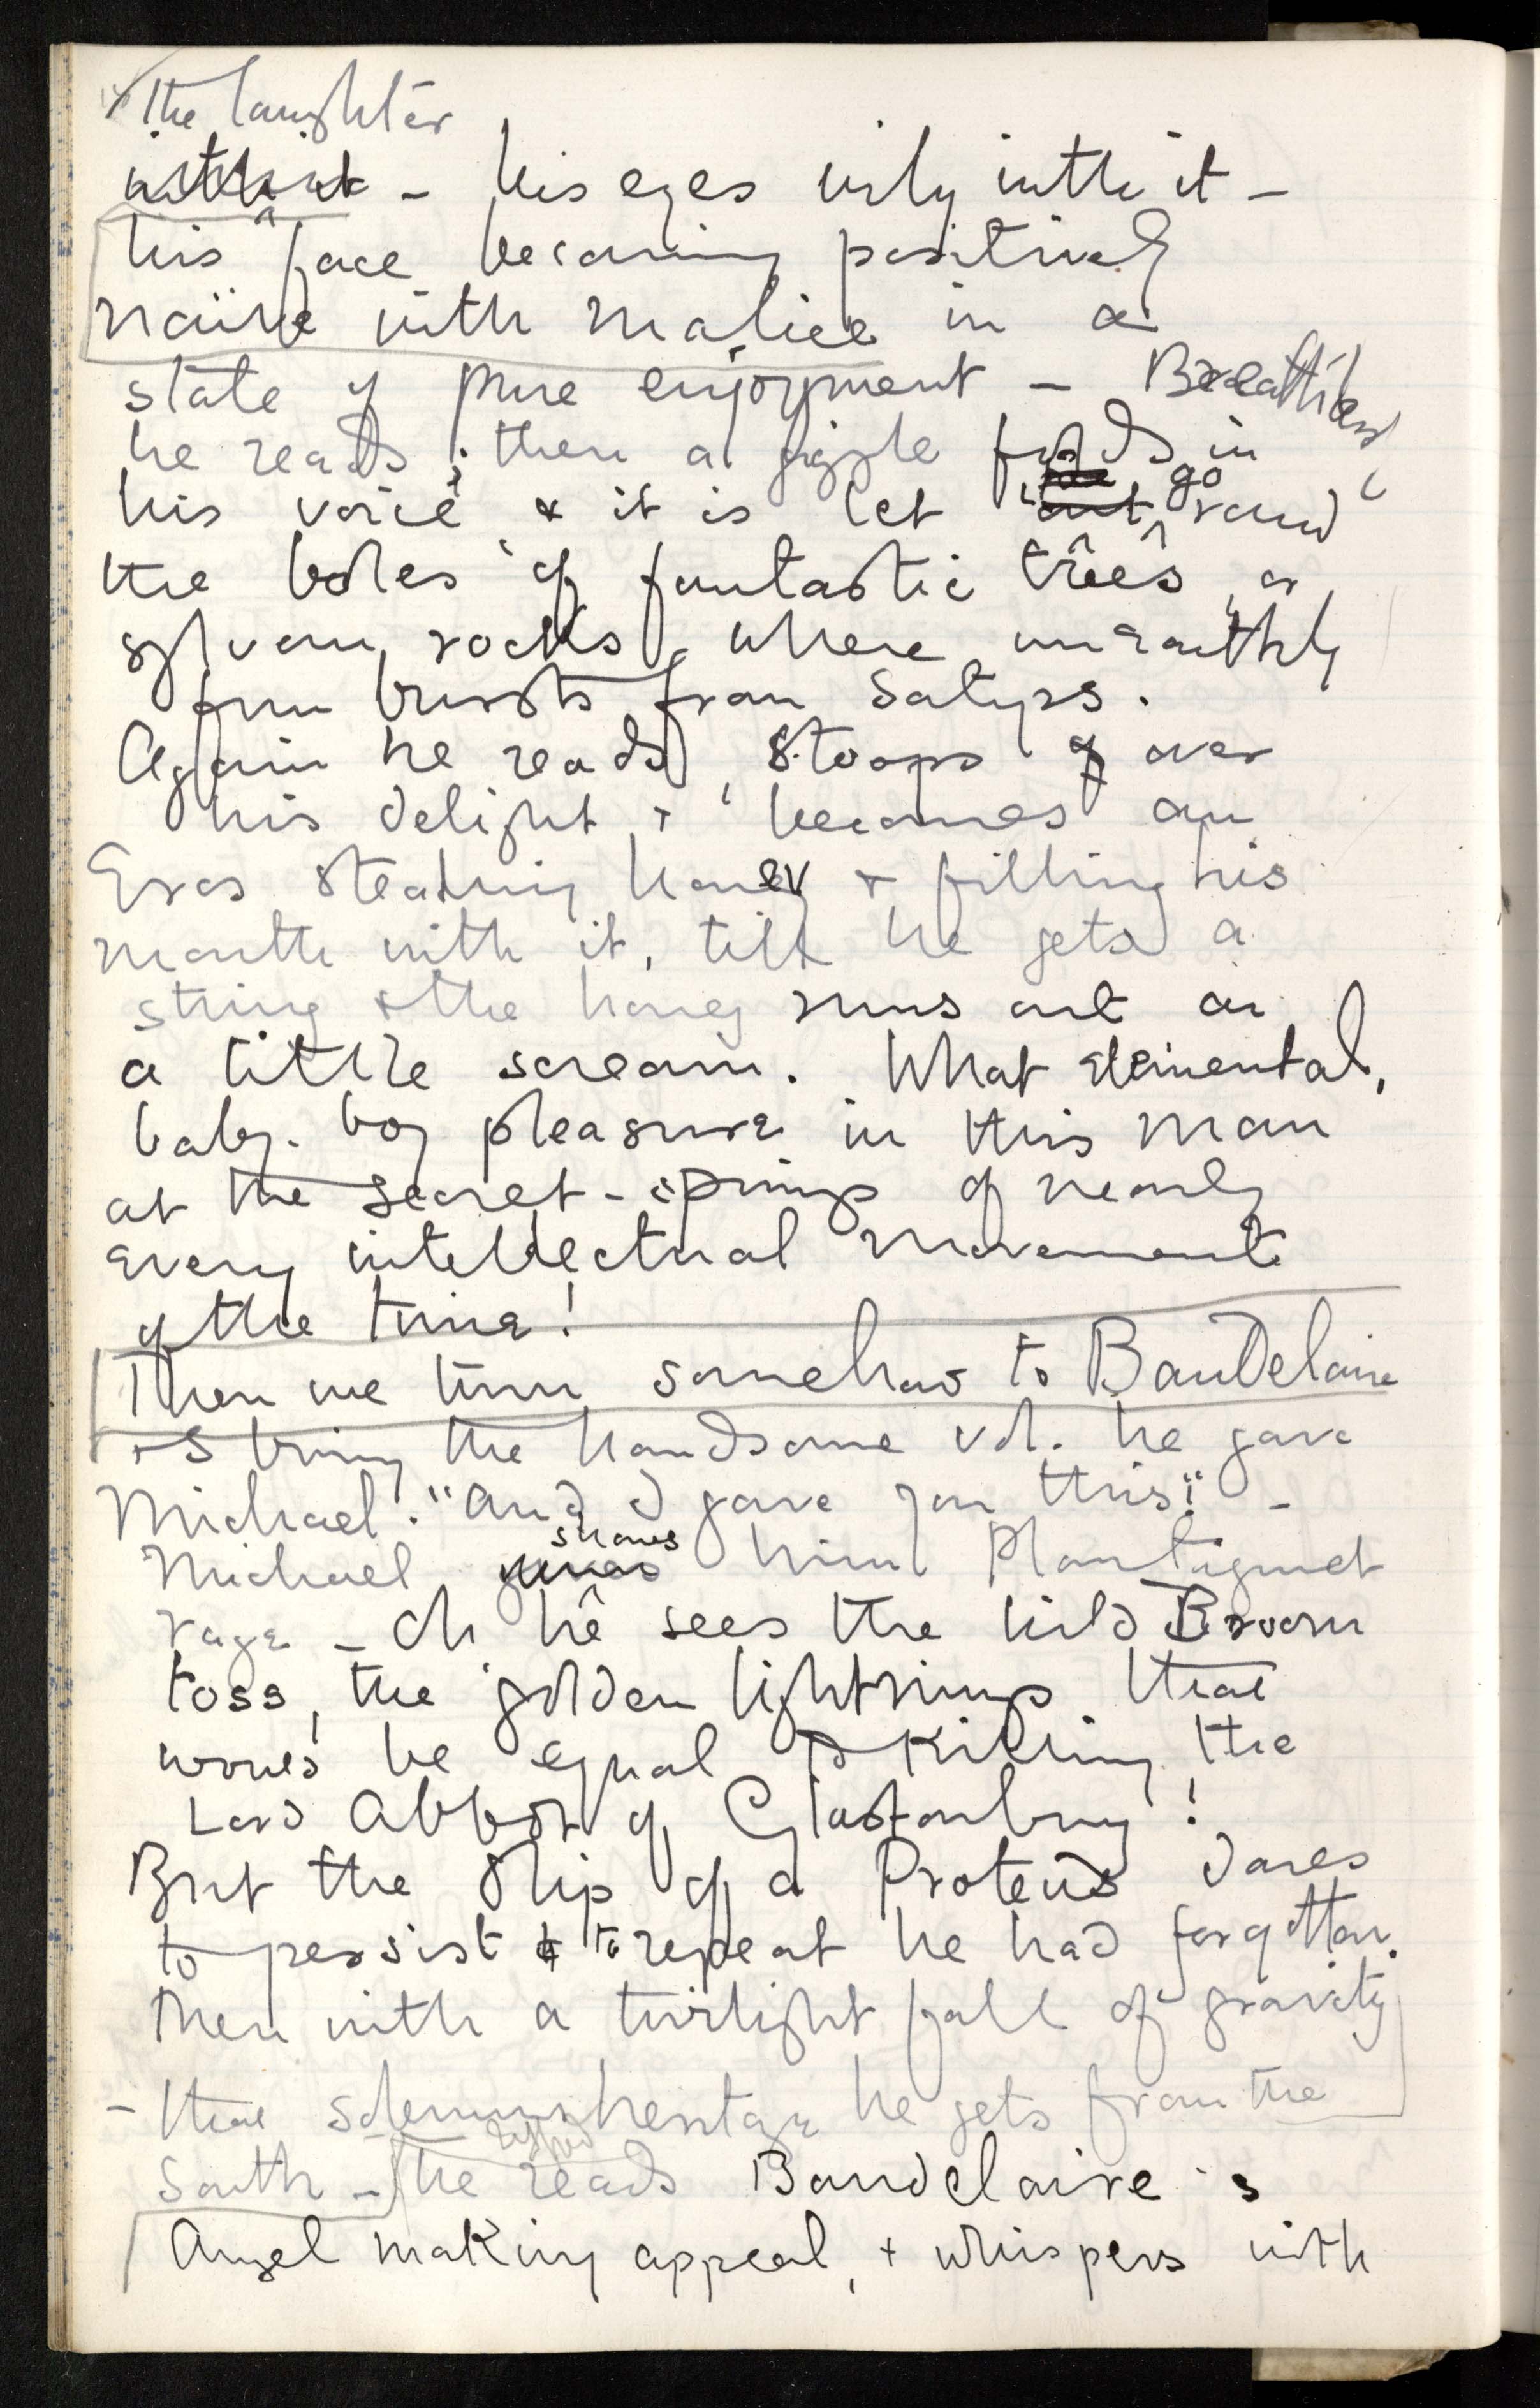 the laughter
with it - his eyes wily with it -
his face becoming positively
naïve with malice in a
state of pure enjoyment - Breathless
he reads; then a giggle finds in
his voice & it is let out go round
the boles of fantastic trees, or
sylvan rocks where unearthly
fun bursts from Satyrs.
Again he reads, stoops over
his delight & becomes an
Eros stealing honey & filling his
mouth with it, till he gets a
sting & the honey runs out in
a little scream. What elemental,
baby-boy pleasure in this man
at the secret-springs of nearly
every intellectual movement
of the time!
Then we turn somehow to Baudelaire
& I bring the handsome vol. he gave
Michael. "And I gave you this!" -
Michael gives shows him Plantagenet
rage - Oh he sees the wild Broom
toss, the golden lightnings that
would be equal to killing the
Lord Abbot of Glastonbury!
But the slip of a Proteus dares
to persist & to repeat he had forgotten.
Then with a twilight fall of gravity
- that solemn heritage he gets from the
South - he reads Baudelaire's
Angel making appeal, & whispers with